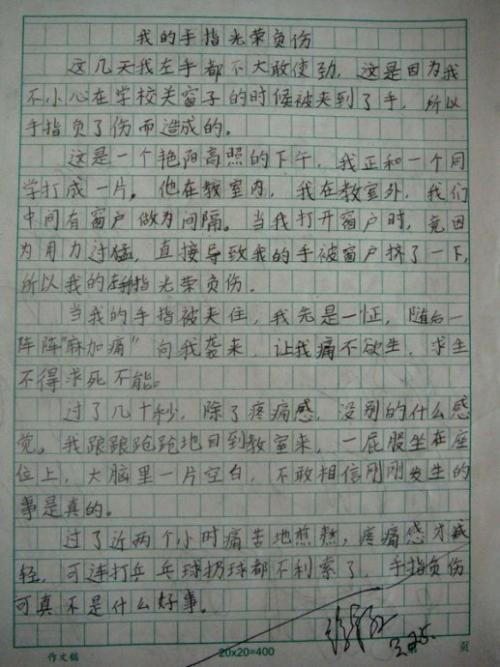 我的手指光荣负伤
这几天我左手都不大敢使劲,这是因为我
不小心在学校关窗子的时候被夹到了手,所以
手指负了伤而造成的。
这是一个艳阳高照的下午,我正和一个同
学打成一片。他在教室内,我在教室外,我们
中间有窗户做为间隔。当我打开窗户时,竟因
为用力过猛,直接导致我的手被窗户挤了一下,
所以我的手指光荣负伤。
当我的手指被夹住,我先是一怔,随后一
阵阵"麻加痛"向我袭来,让我痛不欲生,求生
不得求死不能。
过了几十秒,除了疼痛感,没别的什么感
觉。我踉踉跄跄地回到教室来,一屁股坐在座
位上,大脑里一片空白,不敢相信刚刚发生的
事是真的。
过了近两个小时痛苦地煎熬,疼痛感才减
轻,可连打乒乓球扔球都不利索了,手指负伤
可真不是什么好事。
作文稿 20×20=400 页